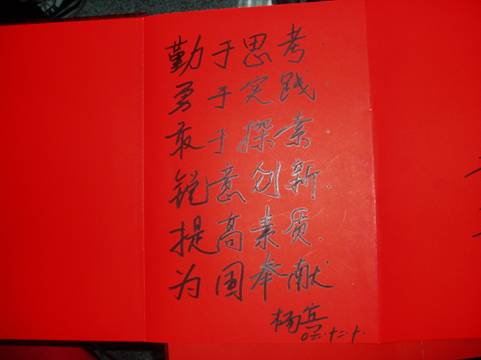 勤于思考
勇于实践
敢于探索
锐意创新
提高素质
为国奉献
杨宾